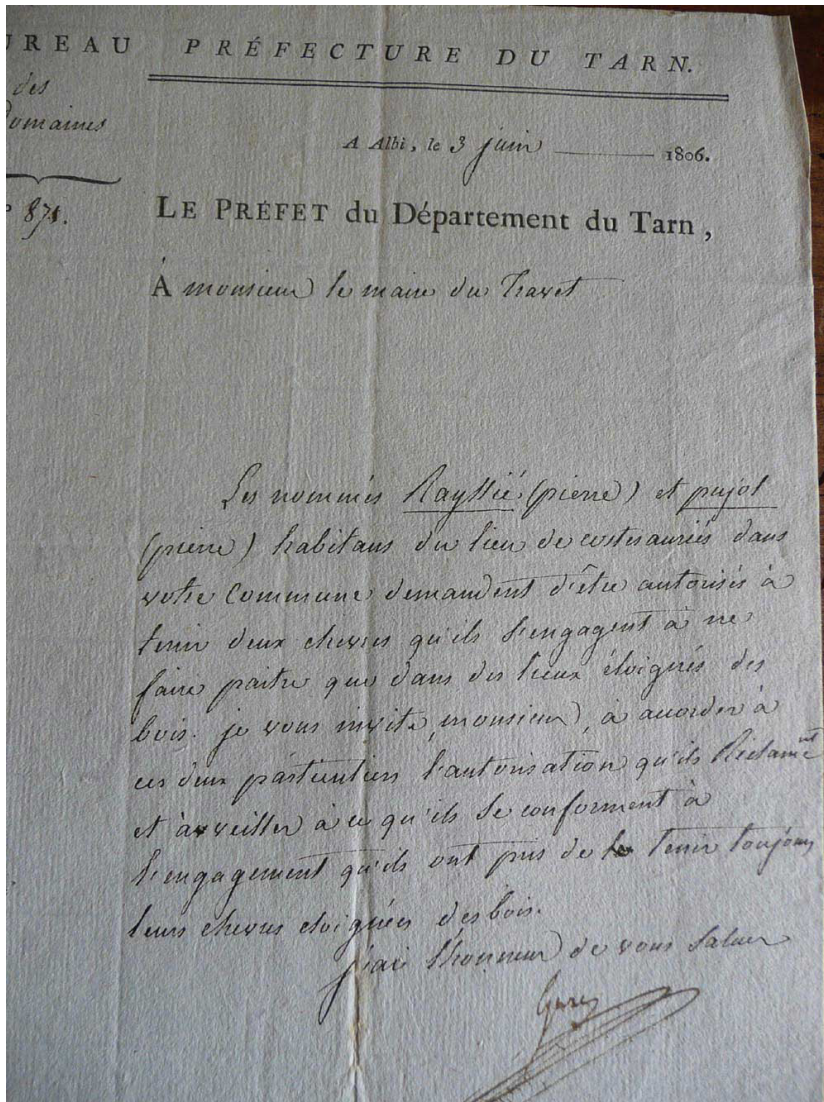 UREAU
des
Domaines
° 871.
PRÉFECTURE DU TARN.
A Albi, le 3 juin 1806.
LE PRÉFET du Département du Tarn,
À monsieur le maire du Travet
Les nommés Rayssié (pierre) et pujol
(pierre) habitans du lieu de costesauriés dans
votre Commune demandent d'être autorisés à
tenir deux chevres qu'ils s'engagent à ne
faire paitre que dans des lieux éloignés des
bois. je vous invite, monsieur, à accorder à
ces deux particuliers l'autorisation qu'ils Réclament
et à veiller à ce qu'ils se conforment à
l'engagement qu'ils ont pris de tenir toujours
leurs chevres eloignées des bois.
j'ai l'honneur de vous saluer